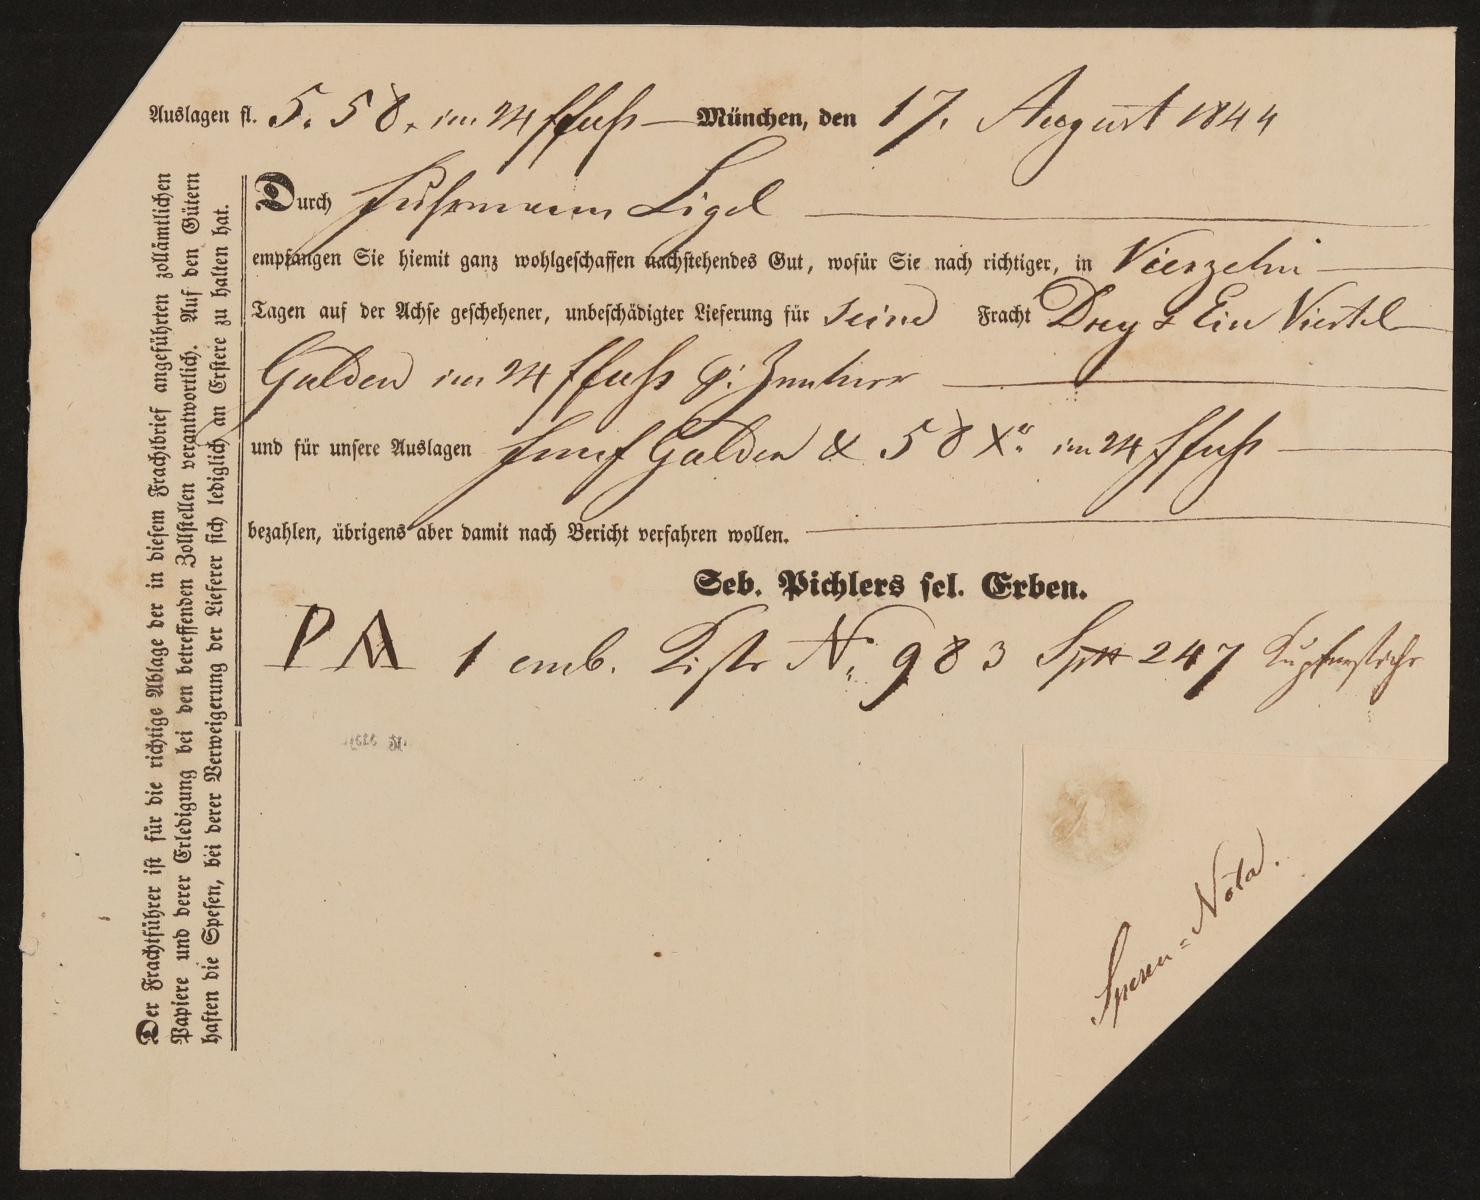 Auslagen fl. 5. 58. im 24 ffuß — München, den 17. August 1844
Durch Fuhrmann Ligel
empfangen Sie hiemit ganz wohlgeschaffen nachstehendes Gut, wofür Sie nach richtiger, in Vierzehn
Tagen auf der Achse geschehener, unbeschädigter Lieferung für seine Fracht Drey & Ein Viertel
Gulden im 24 ffuß p: Zentner
und für unsere Auslagen fünf Gulden & 58 Xr. im 24 ffuß
bezahlen, übrigens aber damit nach Bericht verfahren wollen.
Seb. Pichlers sel. Erben.
P A 1 emb. Kiste N. 983 Sp 247 Kupferstiche
Der Frachtführer ist für die richtige Ablage der in diesem Frachtbrief angeführten zollämtlichen
Papiere und derer Erledigung bei den betreffenden Zollstellen verantwortlich. Auf den Gütern
haften die Spesen, bei derer Verweigerung der Lieferer sich lediglich an Erstere zu halten hat.
Spesen = Nota.